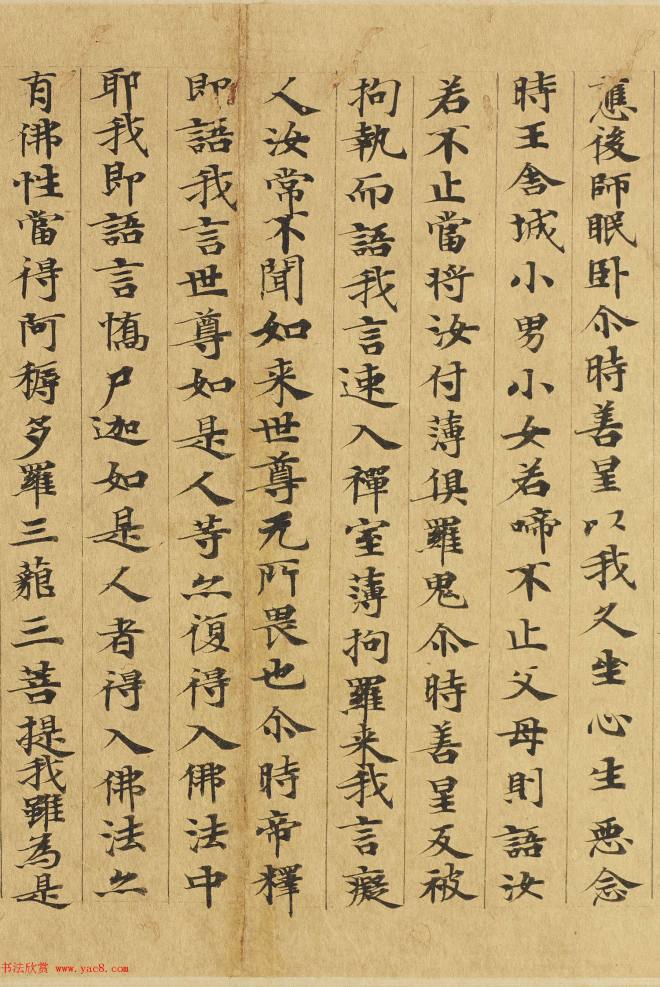 應後師眠卧尒時善星以我久坐心生惡念
時王舍城小男小女若啼不止父母則語汝
若不止當将汝付薄俱羅鬼尒時善星反被
拘執而語我言速入禪室薄拘羅来我言癡
人汝常不聞如来世尊无所畏也尒時帝釋
即語我言世尊如是人等亦復得入佛法中
耶我即語言憍尸迦如是人者得入佛法亦
有佛性當得阿耨多羅三藐三菩提我雖為是
书法欣赏 www.yac8.com